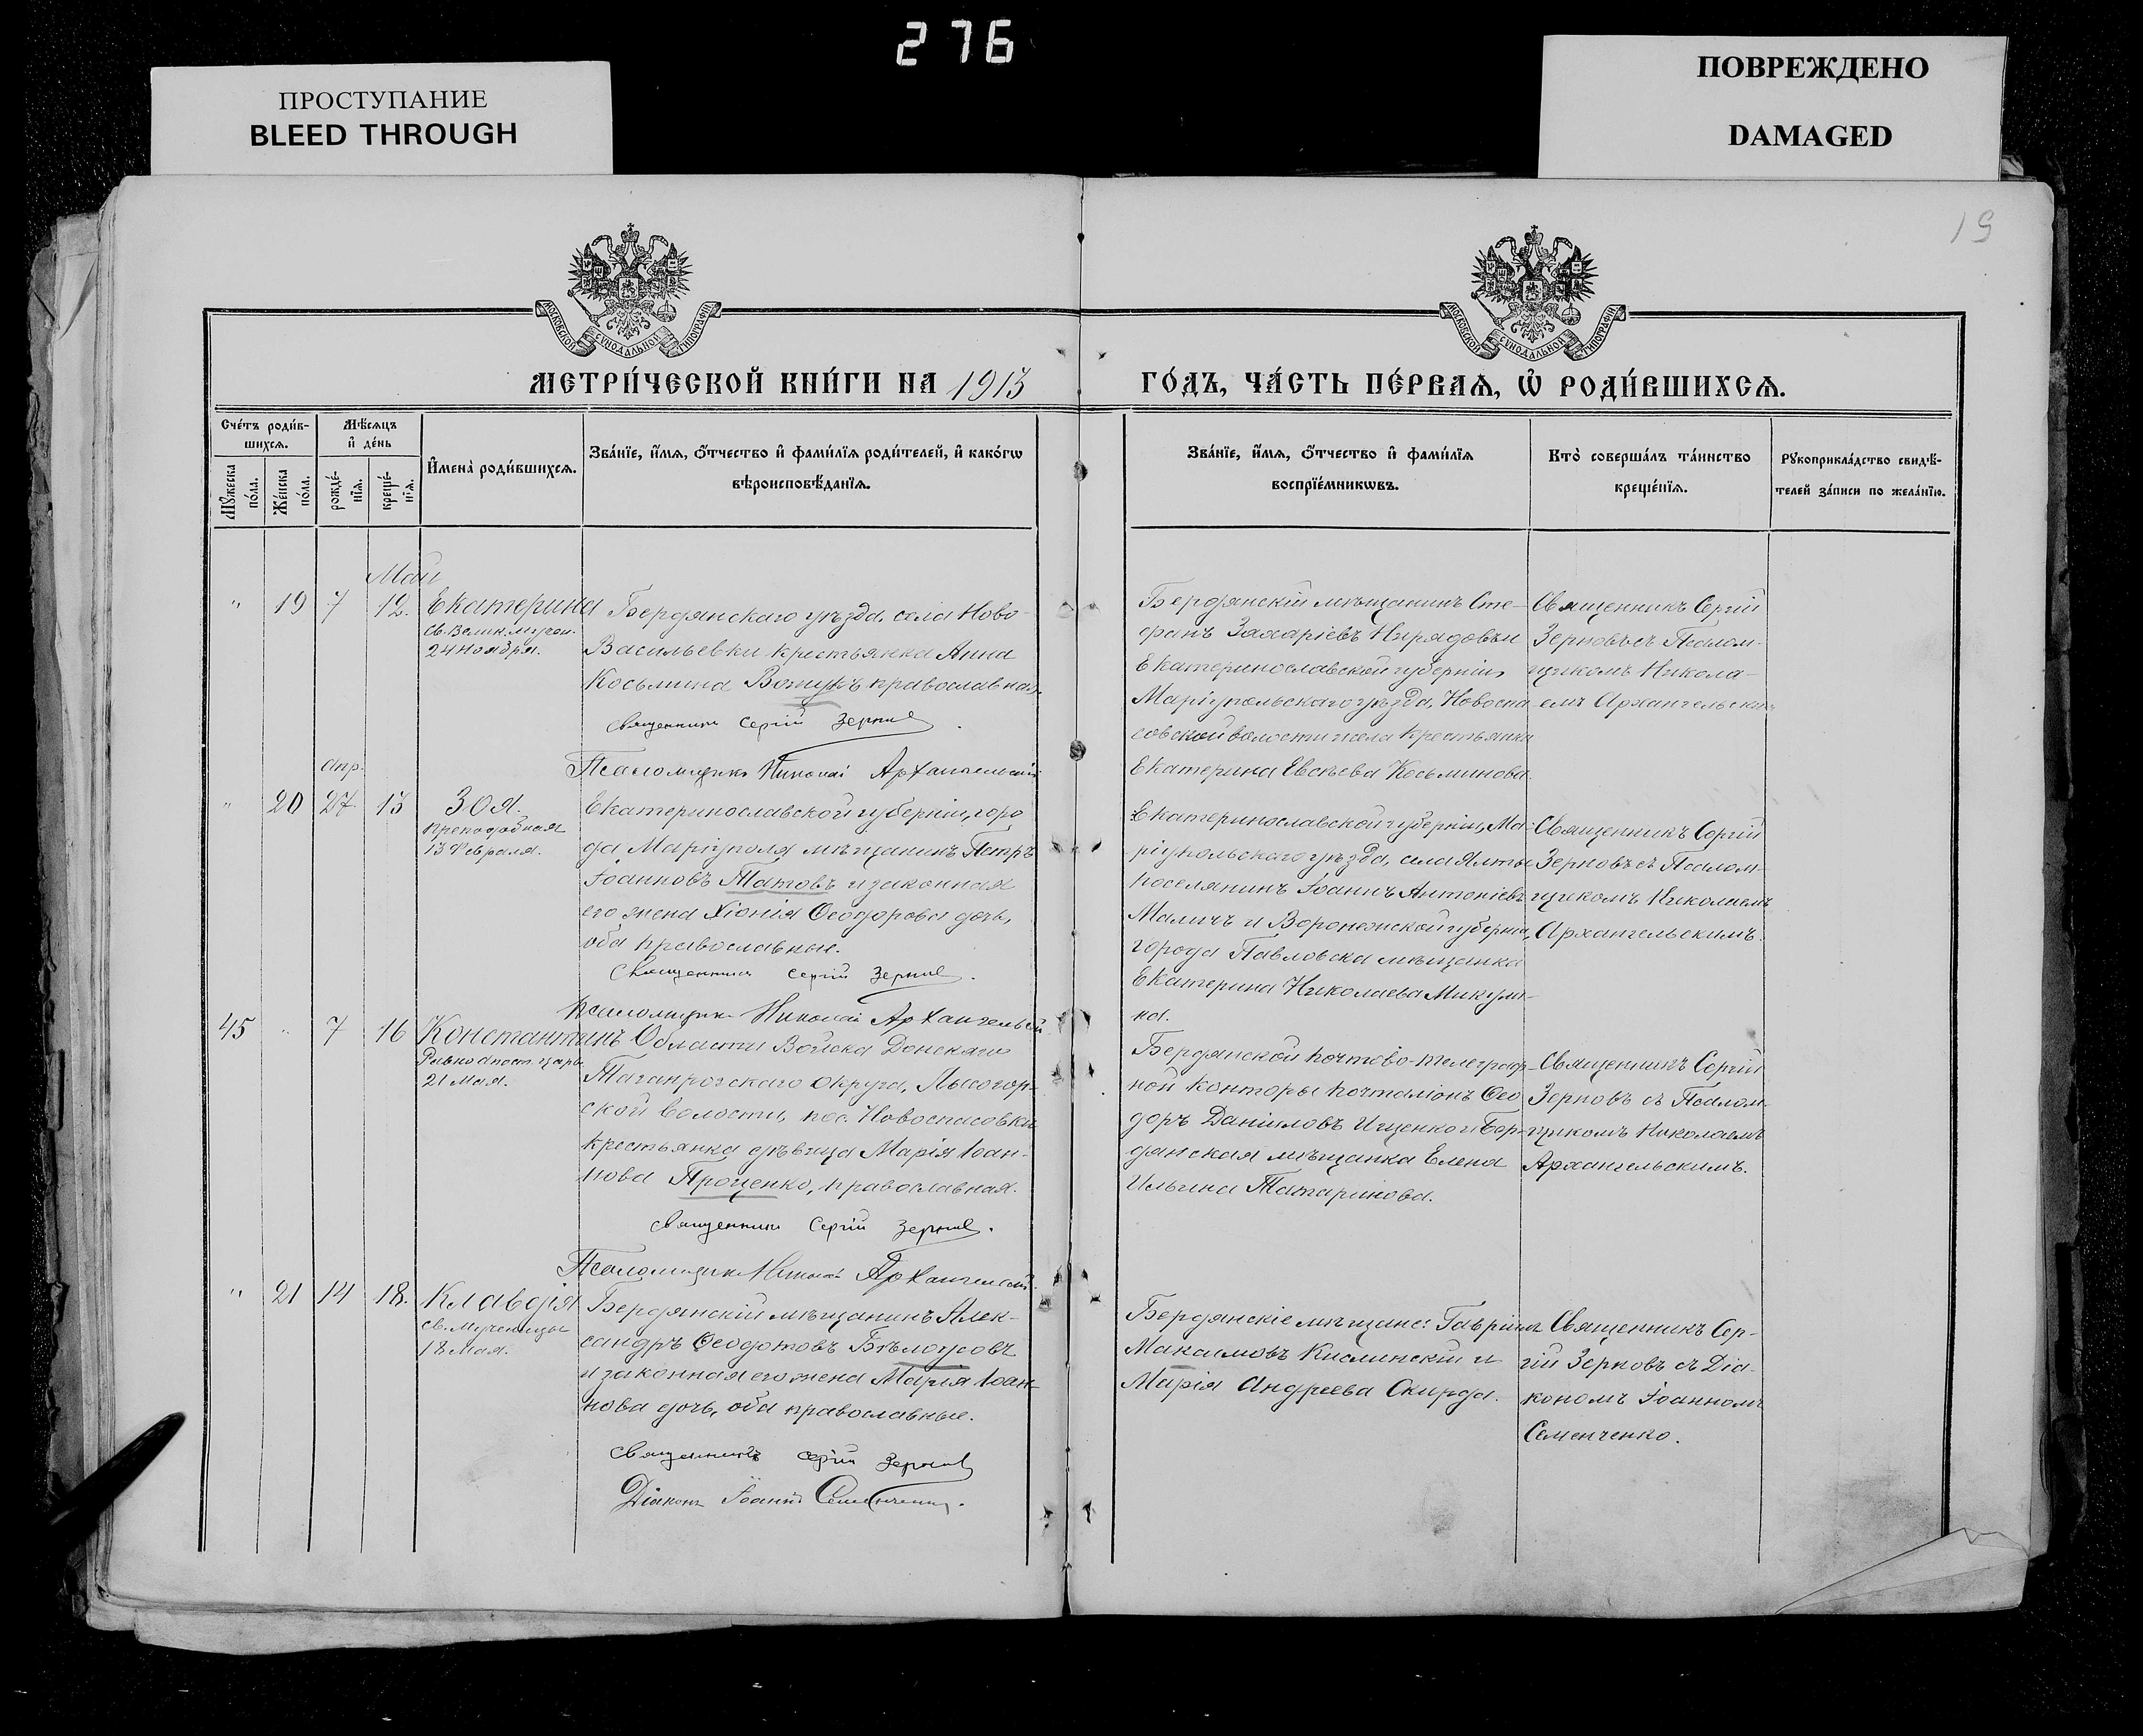 276
ПРОСТУПАНИЕ
BLEED THROUGH
ПОВРЕЖДЕНО
DAMAGED
19
МОСКОВСКОЙ СѴНОДАЛЬНОЙ ТИПОГРАФІИ
МОСКОВСКОЙ СѴНОДАЛЬНОЙ ТИПОГРАФІИ
МЕТРИ́ЧЕСКОЙ КНИ́ГИ НА 1913
ГО́ДЪ, ЧА́СТЬ ПЕ́РВАѦ, Ѽ РОДИ́ВШИХСѦ.
Сче́тъ роди́в-
шихсѧ.
Мꙋ́жеска
по́ла.
Же́нска
по́ла.
Мѣ́сѧцъ
и҆ де́нь
рожде́-
нїѧ.
креще́-
нїѧ.
И҆мена̀ роди́вшихсѧ.
Зва́нїе, и҆́мѧ, ѻ҆́тчество и҆ фами́лїѧ роди́телей, и҆ како́гѡ
вѣроисповѣ́данїѧ.
Зва́нїе, и҆́мѧ, ѻ҆́тчество и҆ фами́лїѧ
воспрїе́мникѡвъ.
Кто̀ соверша́лъ та́инство
креще́нїѧ.
Рꙋкоприкла́дство свидѣ́-
телей за́писи по жела́нїю.
Май
" 19 7 12. Екатерина
Св. Велик. мучен.
24 ноября.
Бердянскаго уѣзда, села Ново-
Васильевки крестьянка Анна
Косьмина православная.
Священникъ Сергій Зерновъ
Псаломщикъ Николай Архангельскій
Бердянскій мѣщанинъ Сте-
фанъ Захаріевъ и
Екатеринославской губерніи,
Маріупольскаго уѣзда, Новоспа-
совской волости и села крестьянка
Екатерина Евсѣева Косьминова.
Священникъ Сергій
Зерновъ съ Псалом-
щикомъ Никола-
емъ Архангельскимъ
апр.
" 20 27. 13 Зоя.
преподобная
13 Февраля.
Екатеринославской губерніи, горо
да Маріуполя мѣщанинъ Петръ
Іоанновъ Татовъ и законная
его жена Хіонія Ѳеодорова дочь,
оба православные.
Священникъ Сергій Зерновъ.
Псаломщикъ Николай Архангельскій
Екатеринославской губерніи, Ма-
ріупольскаго уѣзда, села Ялты
поселянинъ Іоаннъ Антоніевъ
Маличъ и Воронежской губерніи,
города Павловска мѣщанка
Екатерина Николаева Микули-
на.
Священникъ Сергій
Зерновъ съ Псалом-
щикомъ Николаемъ
Архангельскимъ.
45 " 7 16 Константинъ
Равноапост. царь
21 Мая.
Области Войска Донскаго
Таганрогскаго округа, Лысогор-
ской волости, пос. Новоспасовки
крестьянка дѣвица Марія Іоан-
нова Проценко, православная.
Священникъ Сергій Зерновъ.
Псаломщикъ Николай Архангельскій.
Бердянской почтово-телеграф-
ной конторы почталіонъ Ѳео
доръ Даніиловъ Ищенко и Бер-
дянская мѣщанка Елена
Ильина Татаринова.
Священникъ Сергій
Зерновъ съ Псалом-
щикомъ Николаемъ
Архангельскимъ.
" 21 14 18. Клавдія
св. мученицы
18 Мая.
Бердянскій мѣщанинъ Алек-
сандръ Ѳеодотовъ Бѣлоусовъ
и законная его жена Марія Іоан-
нова дочь, оба православные.
Священникъ Сергій Зерновъ
Діаконъ Іоаннъ Семенченко.
Бердянскіе мѣщане: Гавріилъ
Максимовъ Кислинскій и
Марія Андреева Скирда.
Священникъ Сер-
гій Зерновъ съ Діа-
кономъ Іоанномъ
Семенченко.